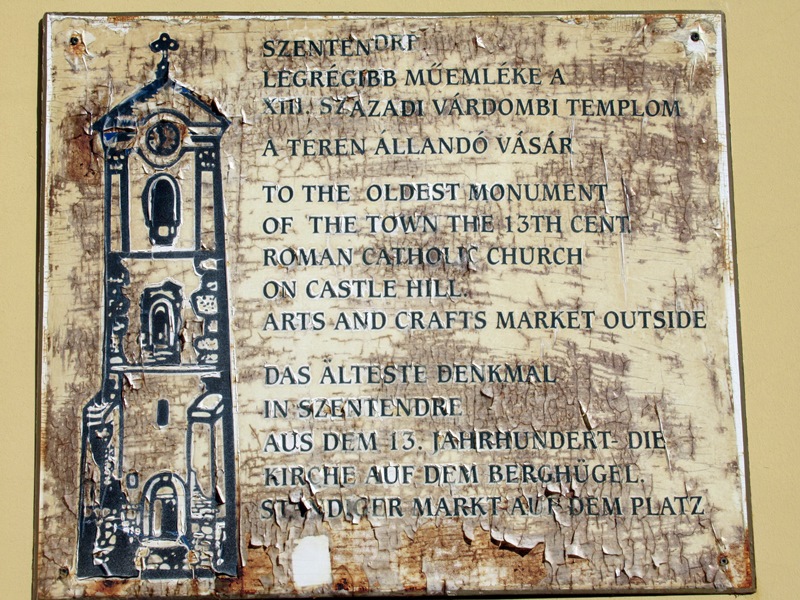 SZENTENDRE
LEGRÉGIBB MŰEMLÉKE A
XIII. SZÁZADI VÁRDOMBI TEMPLOM
A TÉREN ÁLLANDÓ VÁSÁR
TO THE OLDEST MONUMENT
OF THE TOWN THE 13TH CENT.
ROMAN CATHOLIC CHURCH
ON CASTLE HILL.
ARTS AND CRAFTS MARKET OUTSIDE
DAS ÄLTESTE DENKMAL
IN SZENTENDRE
AUS DEM 13. JAHRHUNDERT- DIE
KIRCHE AUF DEM BERGHÜGEL.
STÄNDIGER MARKT AUF DEM PLATZ